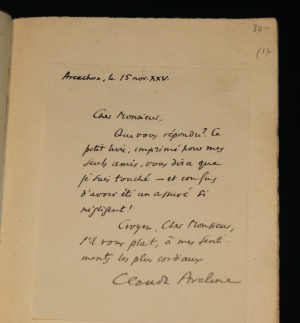 30-
Arcachon, le 15 nov. XXV.
Cher Monsieur,
Que vous répondre? Ce
petit livre, imprimé pour mes
seuls amis, vous dira que
je suis touché — et confus
d'avoir été un assuré si
négligent!
Croyez, Cher Monsieur,
s'il vous plaît, à mes senti
ments les plus cordiaux
Claude Aveline